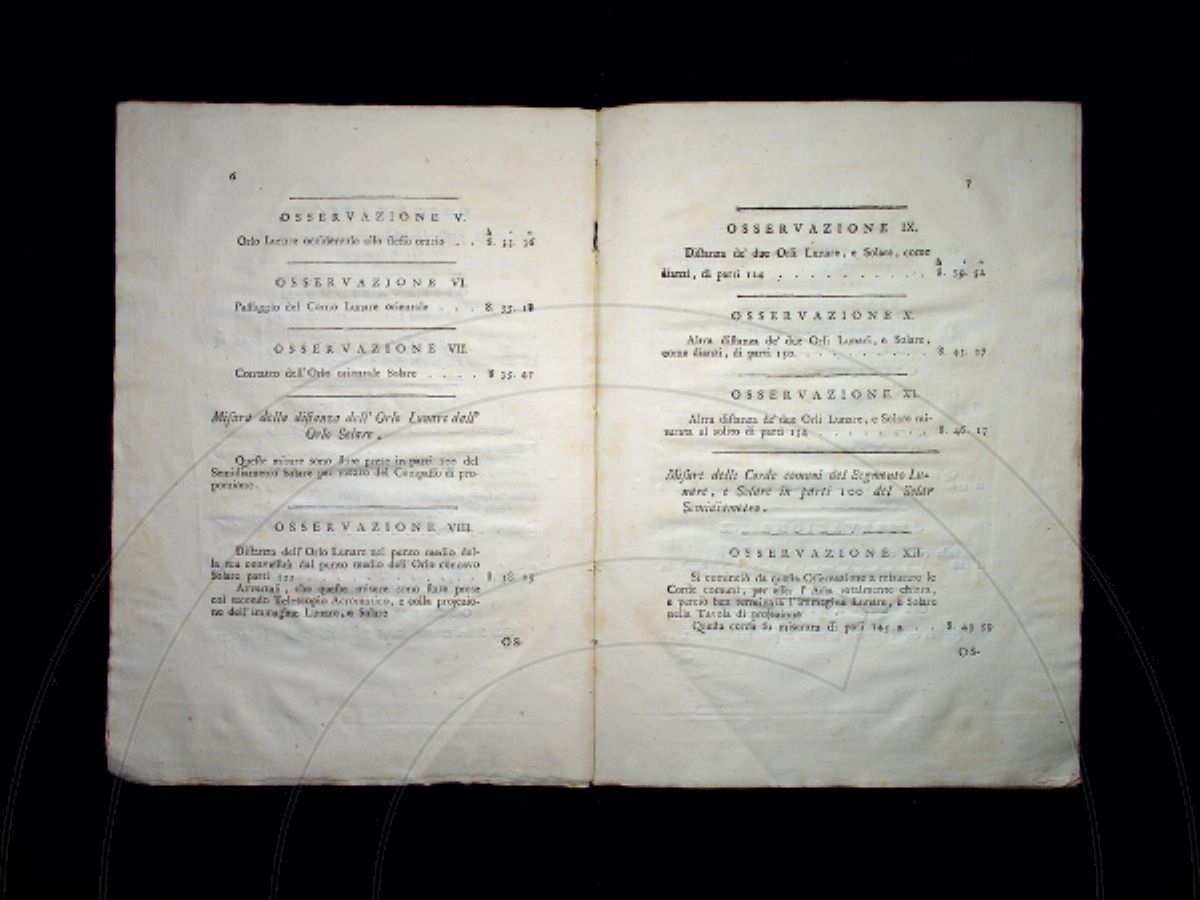 6
OSSERVAZIONE V.
Orlo Lunare occidentale allo ſteſſo orario . . 8. 33. 36
OSSERVAZIONE VI.
Paſſaggio del Corno Lunare orientale . . . 8. 35. 18
OSSERVAZIONE VII.
Contatto dell'Orlo orientale Solare . . . . 8 35. 41
Miſura della diſtanza dell' Orlo Lunare dall'
Orlo Solare.
Queſte miſure sono ſtate prese in parti 100 del
Semidiametro Solare per mezzo del Compaſſo di pro-
porzione.
OSSERVAZIONE VIII.
Diſtanza dell'Orlo Lunare nel punto medio del-
la sua conveſſità dal punto medio dell'Orlo concavo
Solare parti 122 . . . . . . . . . . . 8. 38. 29
Avvertaſi, che queſte misure sono ſtate prese
col secondo Telescopio Acromatico, e colla projezio-
ne dell'immagine Lunare, e Solare
OS-
7
OSSERVAZIONE IX.
Diſtanza de' due Orli Lunare, e Solare, come
dianzi, di parti 124 . . . . . . . . . . 8. 39. 52
OSSERVAZIONE X.
Altra diſtanza de' due Orli Lunari, e Solare,
come dianzi, di parti 130. . . . . . . . . 8. 43. 27
OSSERVAZIONE XI.
Altra diſtanza de' due Orli Lunare, e Solare mi-
surata al solito di parti 134 . . . . . . . 8. 46. 17
Miſure delle Corde comuni del Segmento Lu-
nare, e Solare in parti 100 del Solar
Semidiametro.
OSSERVAZIONE XII.
Si cominciò da queſta Oſſervazione a miſurare le
Corde comuni, per eſſer l'Aria totalmente chiara,
e perciò ben terminata l'Immagine Lunare, e Solare
nella Tavola di projezione
Queſta corda fu miſurata di parti 145 . . 8. 49 59
OS-